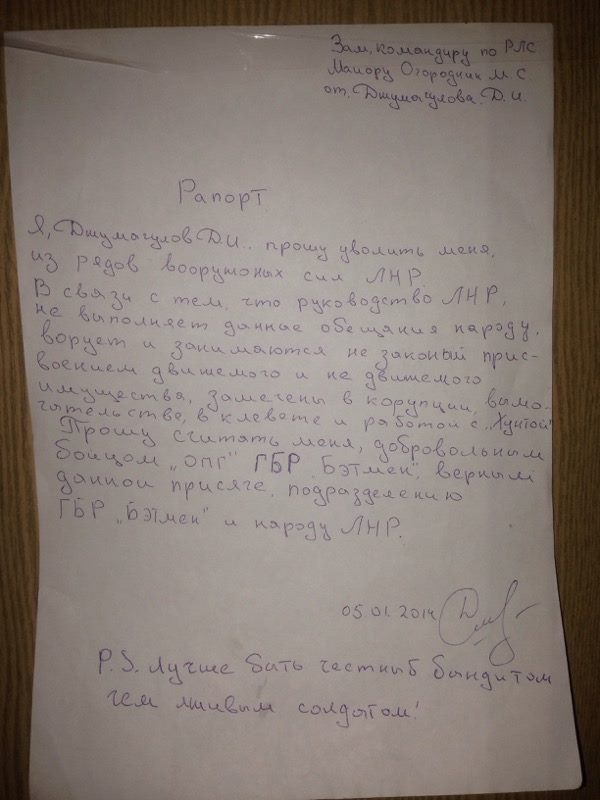 Зам, командиру по РЛС
Майору Огородник М. С.
от. Джумагулова. Д. И.
Рапорт.
Я, Джумагулов Д.И.. прошу уволить меня,
из рядов вооружоных сил ЛНР
В связи с тем, что руководство ЛНР,
не выполняет данные обещяния народу,
ворует и занимаются не законый прис-
воением движемого и не движемого
имущества, замечены в корупции, вымо-
гательстве, в клевете и работой с „Хунтой"
Прошу считять меня, добровольным
бойцом „ОПГ" ГБР „Бэтмен", верным
данной присяге, подразделению
ГБР „Бэтмен" и народу ЛНР.
05.01.2014
P.S. Лучше быть честный бандитом
чем лживым солдатом!